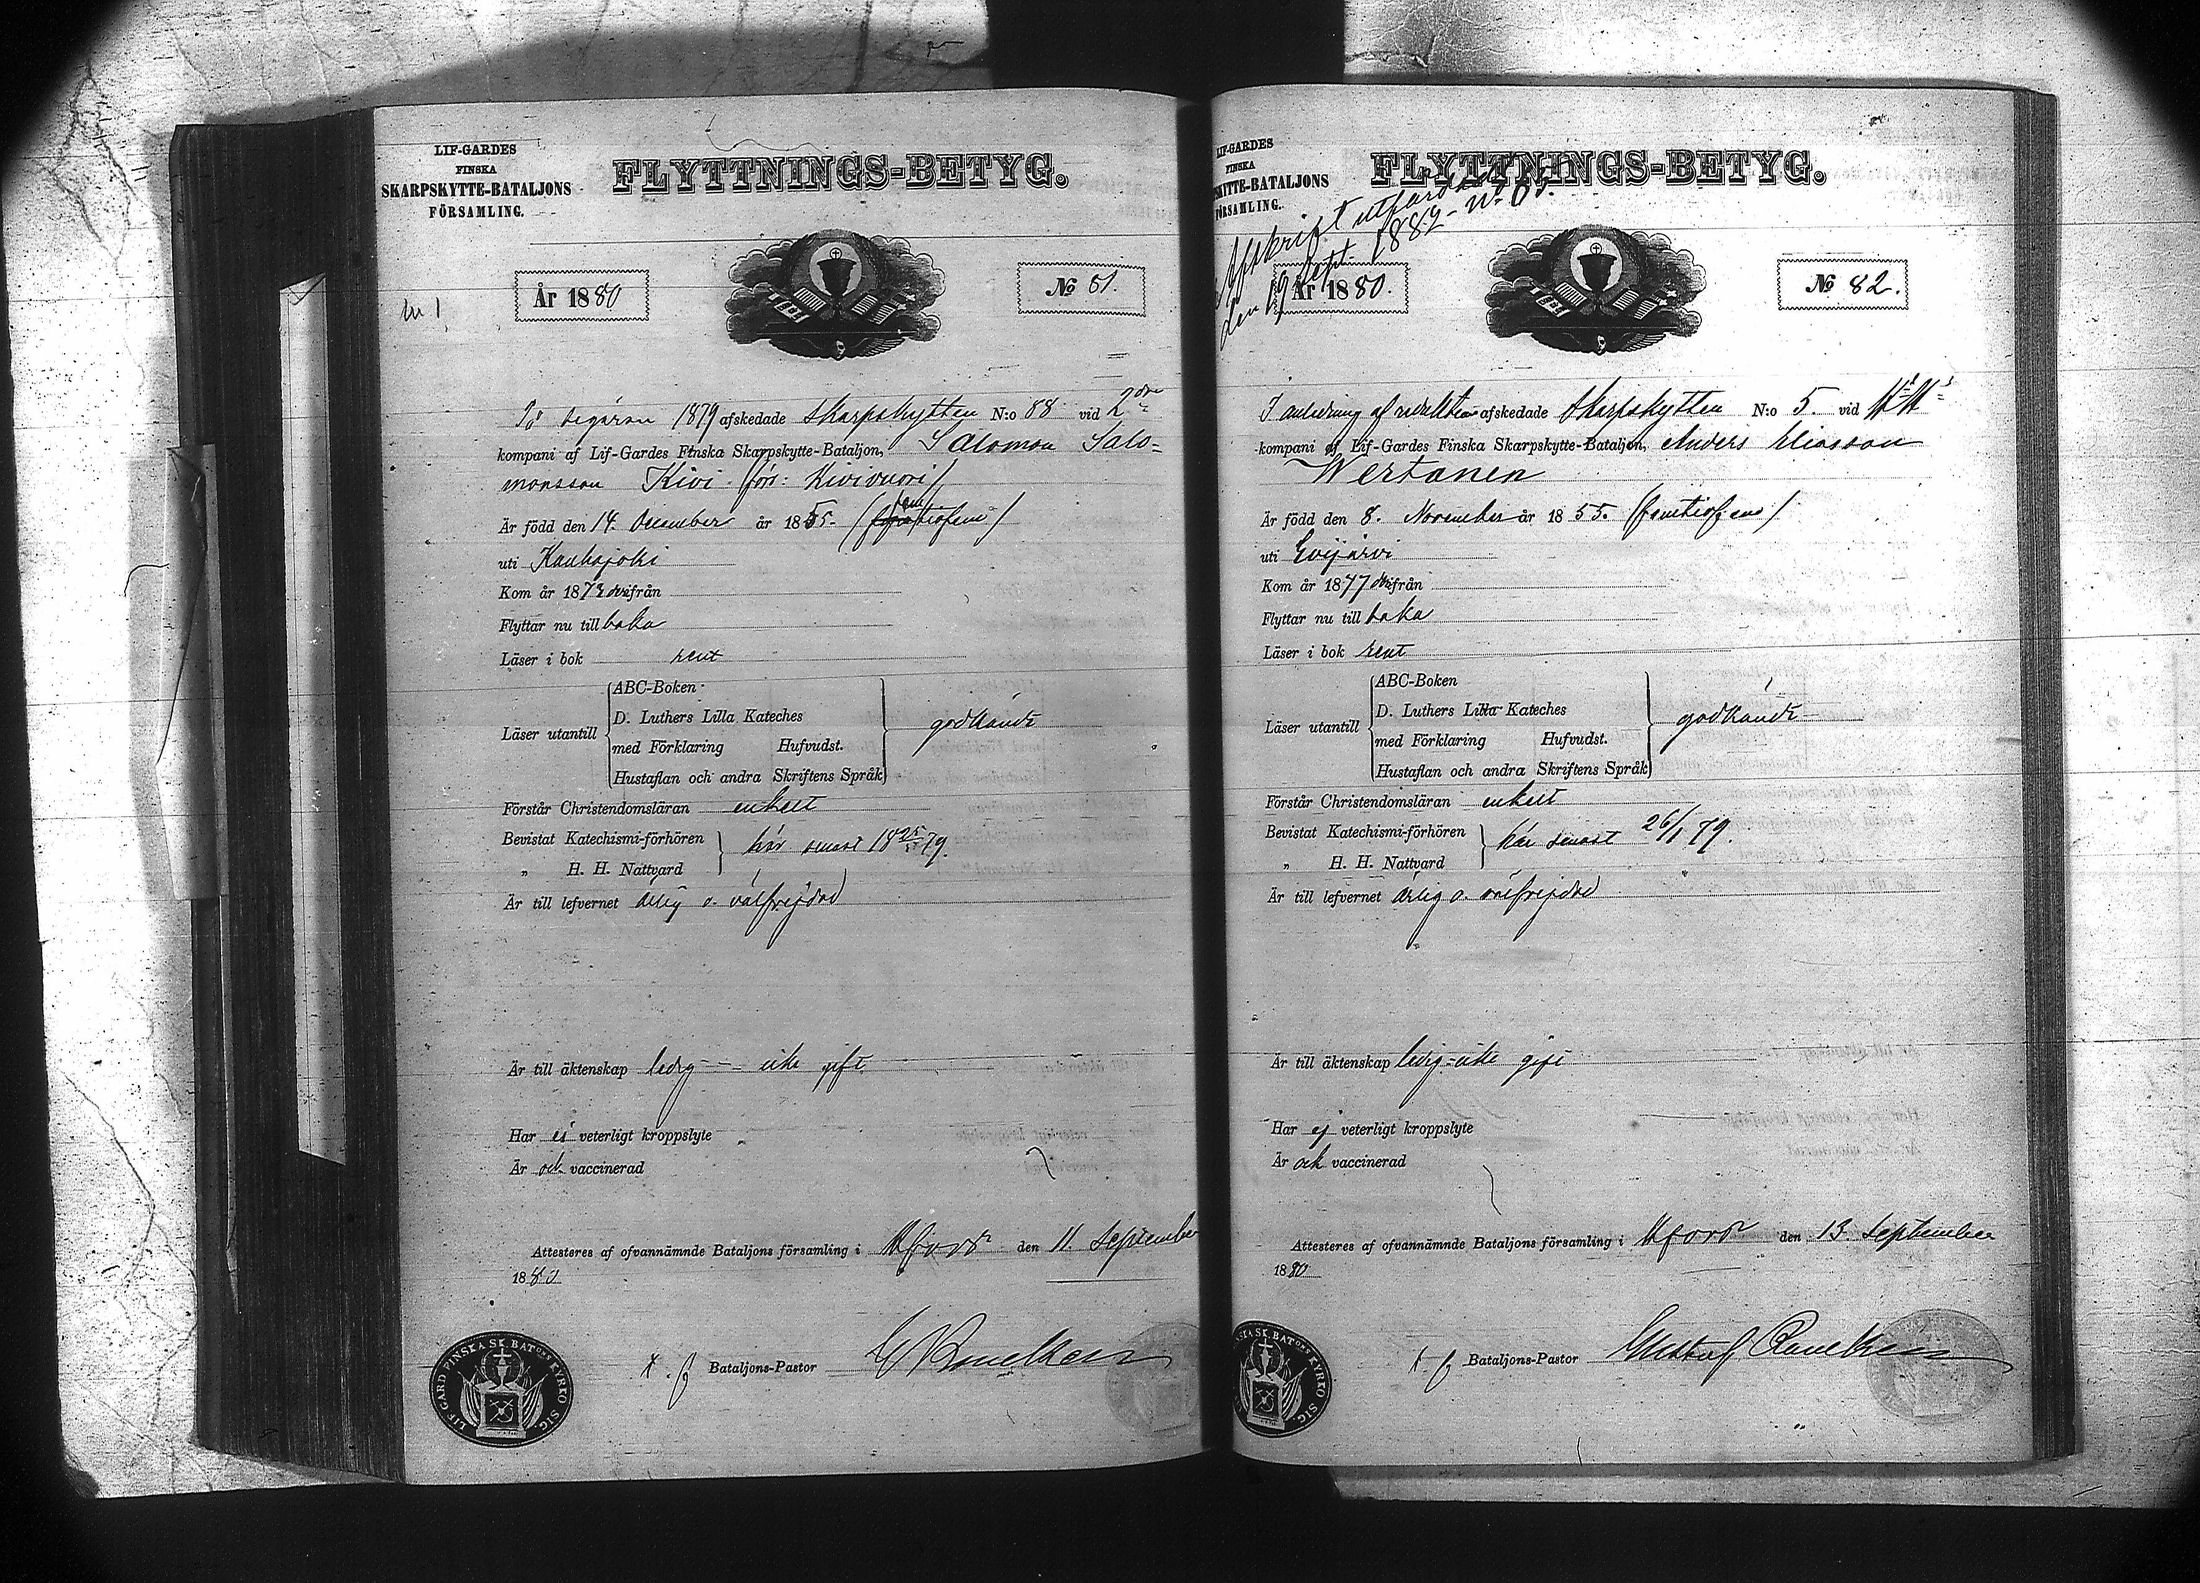 LIF-GARDES
FINSKA
SKARPSKYTTE-BATALJONS
FÖRSAMLING.
FLYTTNINGS-BETYG.
År 1880
№ 81.
På begäran 1879 afskedade Skarpskytten N:o 88 vid 2dra
kompani af Lif-Gardes Finska Skarpskytte-Bataljon, Salomon Salo-
monsson Kivi (förr: Kivivuori)
Är född den 14. December år 1855. (femtiofem)
uti Kauhajoki
Kom år 1879 derifrån
Flyttar nu tillbaka
Läser i bok rent
Läser utantill
ABC-Boken
D. Luthers Lilla Kateches
med Förklaring Hufvudst.
Hustaflan och andra Skriftens Språk
godkändt
Förstår Christendomsläran enkelt
Bevistat Katechismi-förhören
„ H. H. Nattvard
här senast 18 79.
Är till lefvernet ärlig o. välfrejdad
Är till äktenskap ledig — icke gift
Har ej veterligt kroppslyte
Är och vaccinerad
Attesteres af ofvannämnde Bataljons församling i Hfors den 11. September
1880
t. f. Bataljons-Pastor
LIF-GARD FINSKA SK. BATONS KYRKO SIG.
LIF-GARDES
FINSKA
SKYTTE-BATALJONS
FÖRSAMLING.
FLYTTNINGS-BETYG.
Afskrift utfärdad
den 19 Sept. 1887 - N:o 65.
År 1880.
№ 82.
I anledning af reduktion afskedade Skarpskytten N:o 5. vid H. M:s
kompani af Lif-Gardes Finska Skarpskytte-Bataljon, Anders Eliasson
Wertanen
Är född den 8. November år 1855. (femtiofem)
uti Evijärvi
Kom år 1877 derifrån
Flyttar nu tillbaka
Läser i bok rent
Läser utantill
ABC-Boken
D. Luthers Lilla Kateches
med Förklaring Hufvudst.
Hustaflan och andra Skriftens Språk
godkändt
Förstår Christendomsläran enkelt
Bevistat Katechismi-förhören
„ H. H. Nattvard
här senast 26/1 79.
Är till lefvernet ärlig o. välfrejdad
Är till äktenskap ledig - icke gift
Har ej veterligt kroppslyte
Är och vaccinerad
Attesteres af ofvannämnde Bataljons församling i Hfors den 13 September
1880
t. f. Bataljons-Pastor Gustaf
SK. BATONS KYRKO SIG.